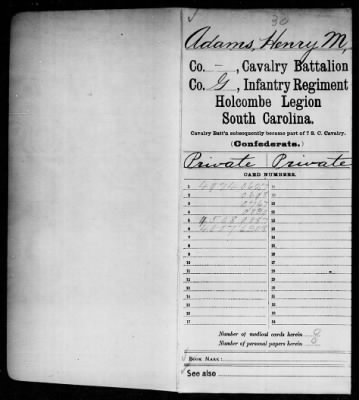 30
Adams, Henry M,
Co. –, Cavalry Battalion
Co. G, Infantry Regiment
Holcombe Legion
South Carolina.
Cavalry Batt'n subsequently became part of 7 S. C. Cavalry.
(Confederate.)
Private Private
CARD NUMBERS.
1
2
3
4
5
6
7
8
9
10
11
12
13
14
15
16
17
Number of medical cards herein 0
Number of personal papers herein 0
BOOK MARK:
See also